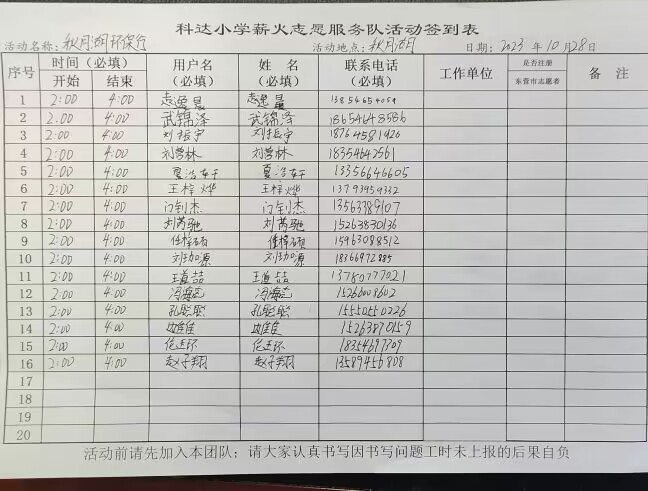 科达小学薪火志愿服务队活动签到表
活动名称: 秋月湖环保行 活动地点: 秋月湖 日期: 2023 年 10 月 28 日
序号 时间（必填） 用户名（必填） 姓 名（必填） 联系电话（必填） 工作单位 是否注册东营市志愿者 备 注
开始 结束
1 2:00 4:00
2 2:00 4:00 武锦泽 武锦泽 18654648586
3 2:00 4:00 刘振宇 刘振宇 18764581926
4 2:00 4:00 刘营林 刘营林 18354642561
5 2:00 4:00 13356646605
6 2:00 4:00 王梓烨 王梓烨 13793959332
7 2:00 4:00 门钊杰 门钊杰 13563389107
8 2:00 4:00 刘芮驰 刘芮驰 15263830136
9 2:00 4:00 15963088512
10 2:00 4:00 18366972885
11 2:00 4:00 王道喆 王道喆 13780777021
12 2:00 4:00 15266008602
13 2:00 4:00 孔聪聪 孔聪聪 15550550226
14 2:00 4:00 15263870159
15 2:00 4:00 18354697709
16 2:00 4:00 赵子翔 赵子翔 13589456808
17
18
19
20
活动前请先加入本团队；请大家认真书写因书写问题工时未上报的后果自负